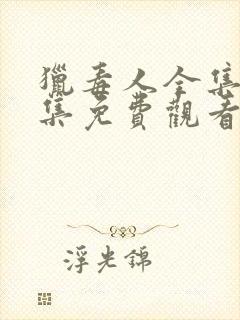 獵毒人全集
集免費觀看
浮光錦